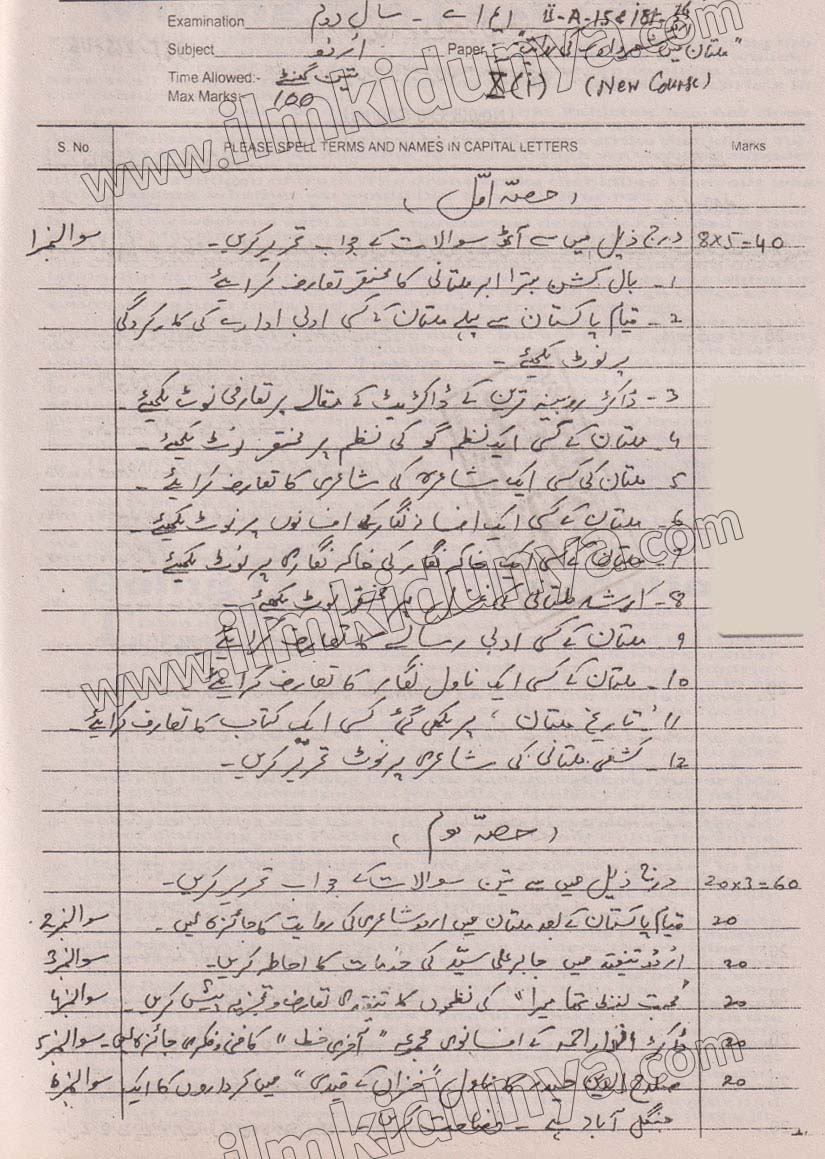 Examination ایم اے - سال دوم II-A-15
Subject اردو Paper "ملتان میں شعر و ادب کی روایت"
Time Allowed:- تین گھنٹے X(i) (New Course)
Max Marks:- 100
S. No. PLEASE SPELL TERMS AND NAMES IN CAPITAL LETTERS Marks
(حصہ اول)
سوال نمبر1 درج ذیل میں سے آٹھ سوالات کے جواب تحریر کریں۔ 8x5=40
1- بال کشن بترا ابر ملتانی کا مختصر تعارف کرایئے۔
2- قیام پاکستان سے پہلے ملتان کے کسی ادبی ادارے کی کارکردگی
پر نوٹ لکھیئے۔
3- ڈاکٹر روبینہ ترین کے ڈاکٹریٹ کے مقالے پر تعارفی نوٹ لکھیئے۔
4- ملتان کے کسی ایک نظم گو کی نظم پر مختصر نوٹ لکھیئے۔
5- ملتان کی کسی ایک شاعرہ کی شاعری کا تعارف کرایئے۔
6- ملتان کے کسی ایک افسانہ نگار کے افسانوں پر نوٹ لکھیئے۔
7- ملتان کے کسی ایک خاکہ نگار کی خاکہ نگاری پر نوٹ لکھیئے۔
8- ارشد ملتانی کی پر مختصر نوٹ لکھیئے
9- ملتان کے کسی ادبی رسالے کا تعارف کرایئے
10- ملتان کے کسی ایک ناول نگار کا تعارف کرایئے۔
11- "تاریخ ملتان" پر لکھی گئی کسی ایک کتاب کا تعارف کرایئے۔
12- کشفی ملتانی کی شاعری پر نوٹ تحریر کریں۔
(حصہ دوم)
درج ذیل میں سے تین سوالات کے جواب تحریر کریں۔ 20x3=60
سوال نمبر2 قیام پاکستان کے بعد ملتان میں اردو شاعری کی روایت کا جائزہ لیں۔ 20
سوال نمبر3 اردو تنقید میں جابر علی سید کی خدمات کا احاطہ کریں۔ 20
سوال نمبر4 "محبت لفظ تھا میرا" کی نظموں کا تنقیدی تعارف و تجزیہ پیش کریں۔ 20
سوال نمبر5 ڈاکٹر انوار احمد کے افسانوی مجموعہ "آخری خط" کا فنی و فکری جائزہ لیں۔ 20
سوال نمبر6 صلاح الدین حیدر کا ناول "خزاں کے قیدی" میں کرداروں کا ایک 20
جنگل آباد ہے۔ وضاحت کریں۔
www.ilmkidunya.com
www.ilmkidunya.com
www.ilmkidunya.com
www.ilmkidunya.com